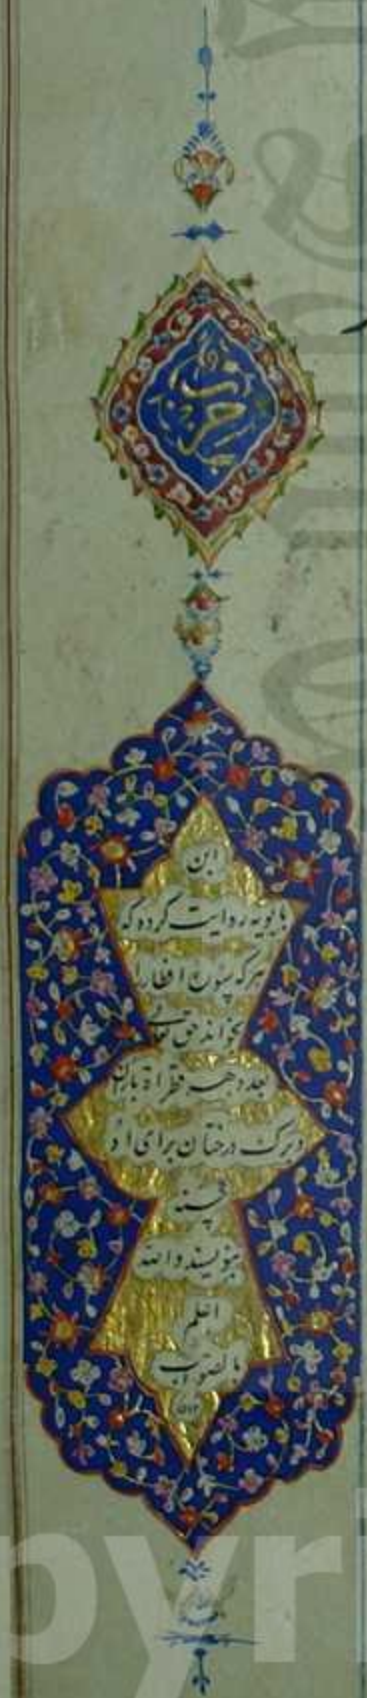 حزب
ابن
بابویه روایت کرده که
هرکه سوره انفطار را
بخواند حق تعالی
بعدد هر قطرة باران
و برک درختان برای او
حسنه
بنویسند والله
اعلم
بالصواب